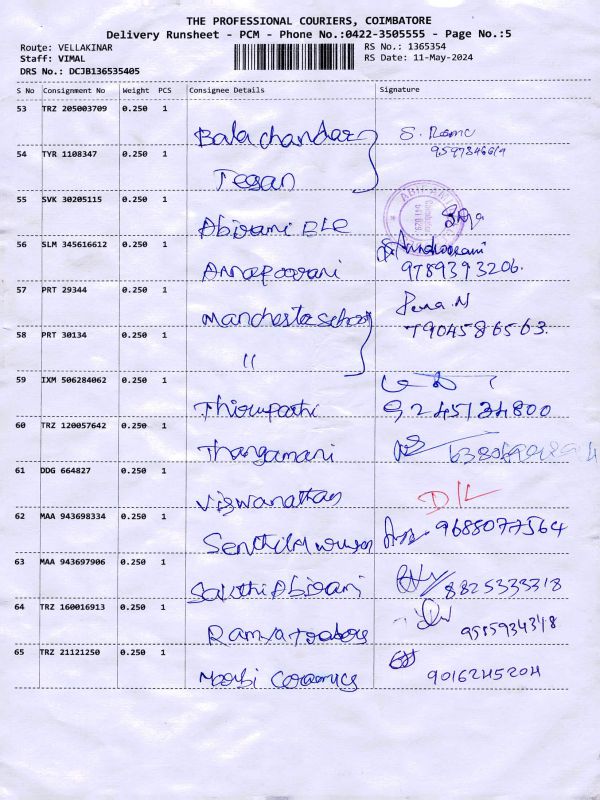 THE PROFESSIONAL COURIERS, COIMBATORE
Delivery Runsheet - PCM - Phone No.:0422-3505555 - Page No.:5
Route: VELLAKINAR RS No.: 1365354
Staff: VIMAL RS Date: 11-May-2024
DRS No.: DCJB136535405
S No Consignment No Weight PCS Consignee Details Signature
53 TRZ 205003709 0.250 1 Balachandar
54 TYR 1108347 0.250 1
55 SVK 30205115 0.250 1 Abirami ELE
56 SLM 345616612 0.250 1 Annapoorani 9789393206.
57 PRT 29344 0.250 1 Manchester
58 PRT 30134 0.250 1 " 7904586563.
59 IXM 506284062 0.250 1 Thirupathi 9245134800
60 TRZ 120057642 0.250 1 Thangamani
61 DDG 664827 0.250 1 Viswanathan D/L
62 MAA 943698334 0.250 1 9688077564
63 MAA 943697906 0.250 1 Sakthi Abirami 8825333318
64 TRZ 160016913 0.250 1 Ramya Traders
65 TRZ 21121250 0.250 1 Moorbi Ceramics 9016245204